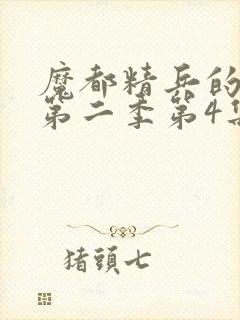 魔都精兵的
第二季第4集
猪頭七